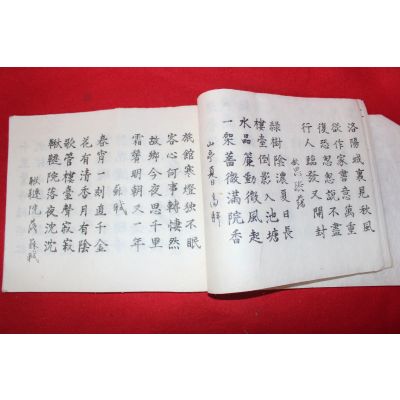 洛陽城裏見秋風
欲作家書意萬重
復恐忽忽說不盡
行人臨發又開封
秋思 張籍
綠樹陰濃夏日長
樓臺倒影入池塘
水品簾動微風起
一架薔薇滿院香
山亭夏日 高駢
旅館寒燈獨不眠
客心何事轉悽然
故鄉今夜思千里
霜鬢明朝又一年
蘇軾
春宵一刻直千金
花有清香月有陰
歌管樓臺聲寂寂
鞦韆院落夜沈沈
鞦韆院落 蘇軾